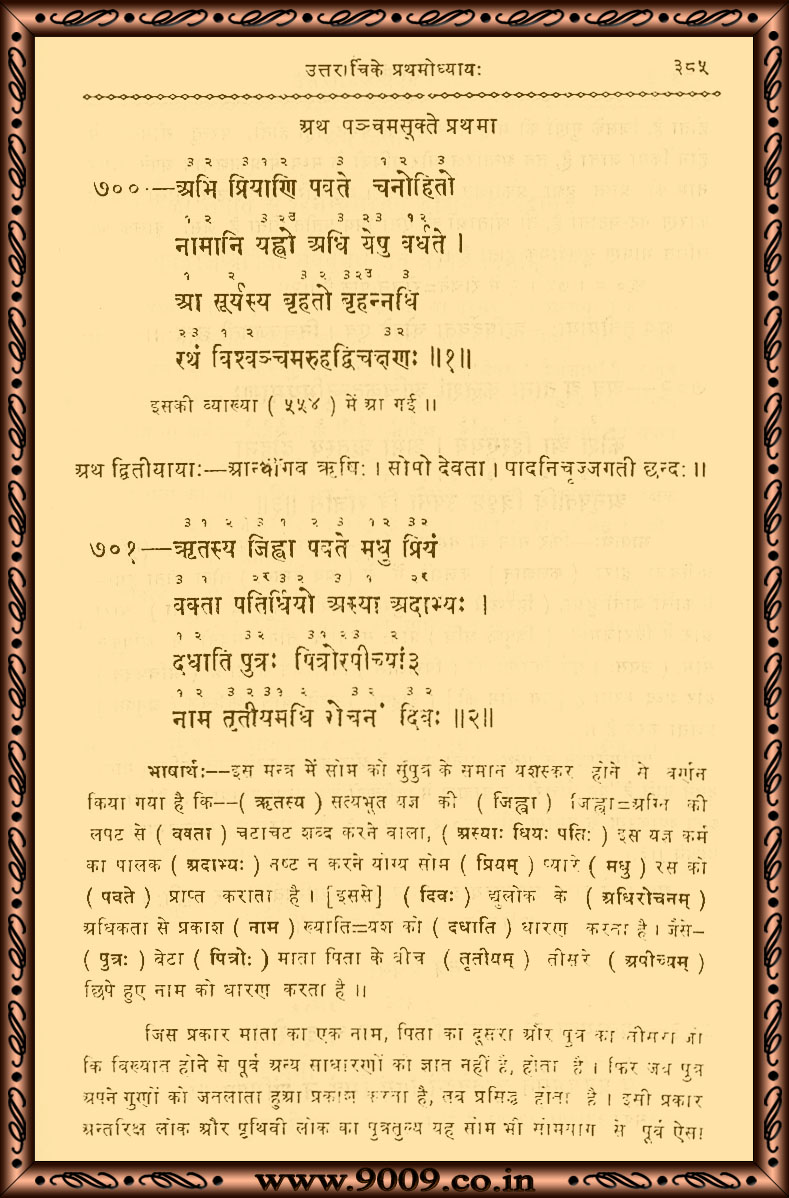 उत्तरार्चिके प्रथमोध्यायः ३८५
अथ पञ्चमसूक्ते प्रथमा
३ २ ३ १ २ ३ १ २ ३
७००—अभि प्रियाणि पवते चनोहितो
१ २ ३ २उ ३ २३ १२
नामानि यह्वो अधि येषु वर्धते ।
१ २ ३ २ ३२उ ३
आ सूर्यस्य बृहतो बृहन्नधि
२३ १ २ ३२
रथं विश्वञ्चमरुहद्विचक्षणः ॥१॥
इसकी व्याख्या ( ५५४ ) में आ गई ॥
अथ द्वितीयायाः— ऋषिः । सोमो देवता । पादनिचृज्जगती छन्दः ॥
३ १ २ ३ १ २ ३ १२ ३२
७०१—ऋतस्य जिह्वा पवते मधु प्रियं
३ १ २र ३ २ ३ १ २र
वक्ता पतिर्धियो अस्या अदाभ्यः ।
१ २ ३२ ३१ २३ २
दधाति पुत्रः पित्रोरपीच्यां३
१ २ ३ २ ३१ २ ३ २ ३ २
नाम तृतीयमधि रोचनं दिवः ॥२॥
भाषार्थः--इस मन्त्र में सोम को सुपुत्र के समान यशस्कर होने से वर्णन
किया गया है कि--( ऋतस्य ) सत्यभूत यज्ञ की ( जिह्वा ) जिह्वा=अग्नि की
लपट से ( वक्ता ) चटाचट शब्द करने वाला, ( अस्याः धियः पतिः ) इस यज्ञ कर्म
का पालक ( अदाभ्यः ) नष्ट न करने योग्य सोम ( प्रियम् ) प्यारे ( मधु ) रस को
( पवते ) प्राप्त कराता है । [इससे] ( दिवः ) द्युलोक के ( अधिरोचनम् )
अधिकता से प्रकाश ( नाम ) ख्याति=यश को ( दधाति ) धारण करता है । जैसे–
( पुत्रः ) बेटा ( पित्रोः ) माता पिता के बीच ( तृतीयम् ) तीसरे ( अपीच्यम् )
छिपे हुए नाम को धारण करता है ॥
जिस प्रकार माता का एक नाम, पिता का दूसरा और पुत्र का तीसरा जो
कि विख्यात होने से पूर्व अन्य साधारणों को ज्ञात नहीं है, होता है । फिर जब पुत्र
अपने गुणों को जनलाता हुआ प्रकाश करता है, तब प्रसिद्ध होता है । इसी प्रकार
अन्तरिक्ष लोक और पृथिवी लोक का पुत्रतुल्य यह सोम भी सोमयाग से पूर्व ऐसा
www.9009.co.in